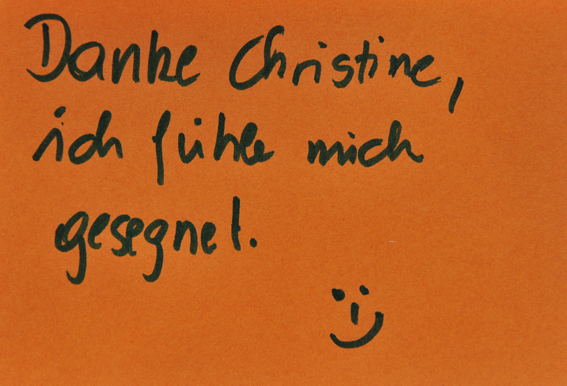 Danke Christine,
ich fühle mich
gesegnet.